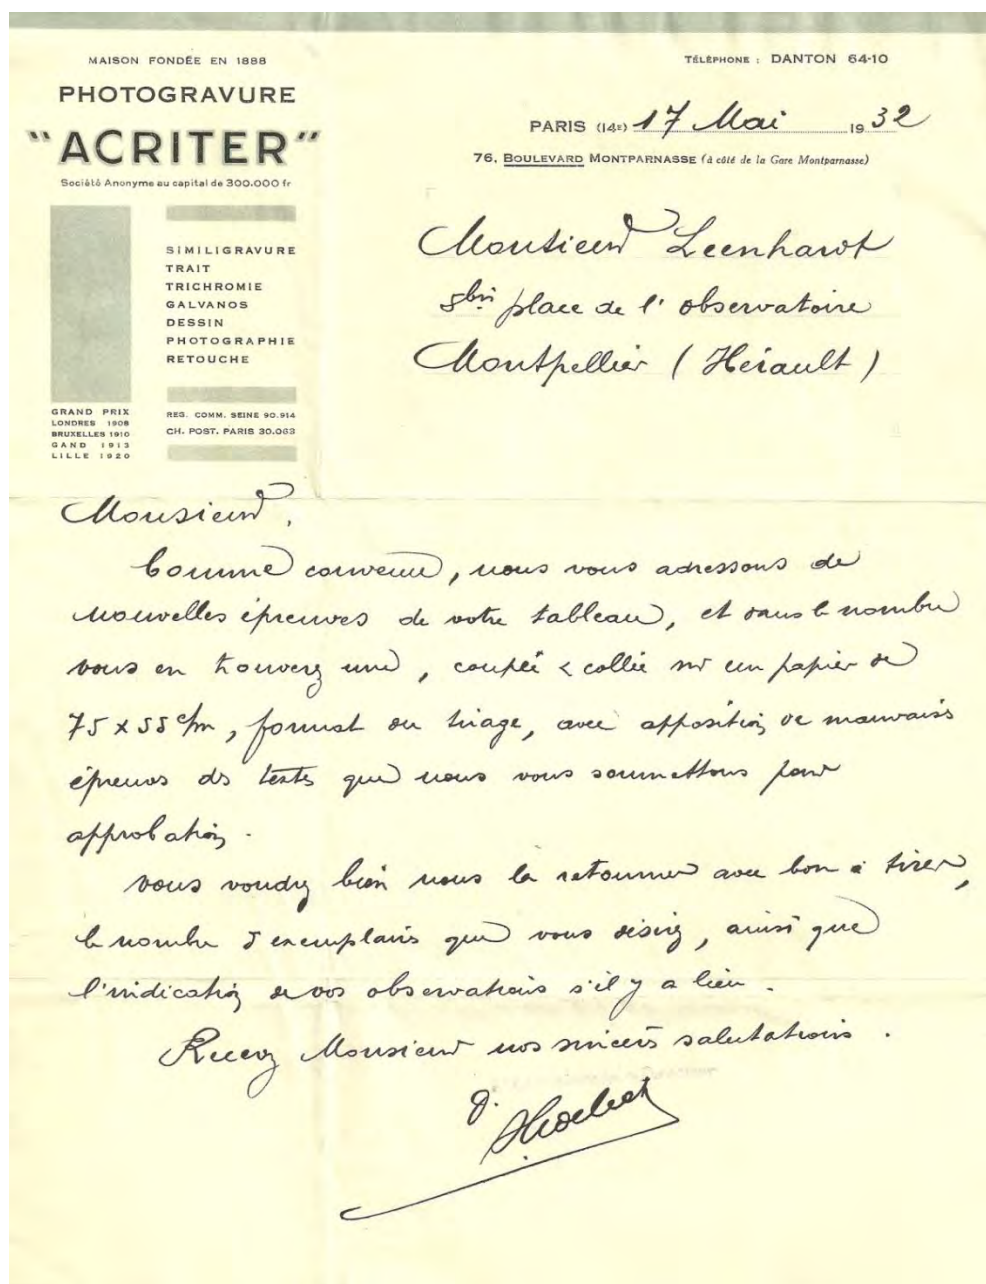 MAISON FONDÉE EN 1888
PHOTOGRAVURE
"ACRITER"
Société Anonyme au capital de 300.000 fr
SIMILIGRAVURE
TRAIT
TRICHROMIE
GALVANOS
DESSIN
PHOTOGRAPHIE
RETOUCHE
GRAND PRIX
LONDRES 1908
BRUXELLES 1910
GAND 1913
LILLE 1920
REG. COMM. SEINE 90.914
CH. POST. PARIS 30.063
TÉLÉPHONE : DANTON 64-10
PARIS (14e) 17 Mai 1932
76, BOULEVARD MONTPARNASSE (à côté de la Gare Montparnasse)
Monsieur Leenhardt
8bis place de l'observatoire
Montpellier (Hérault)
Monsieur,
Comme convenu, nous vous adressons de
nouvelles épreuves de votre tableau, et dans le nombre
vous en trouverez une, coupée & collée sur un papier de
75 x 55 c/m, format du tirage, avec apposition de mauvaises
épreuves des textes que nous vous soumettons pour
approbation.
Vous voudrez bien nous la retourner avec bon à tirer,
le nombre d'exemplaires que vous désirez, ainsi que
l'indication de vos observations s'il y a lieu.
Recevez Monsieur nos sincères salutations.